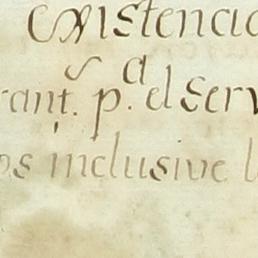 Existencia
rant. p.a el serv
os inclusive l